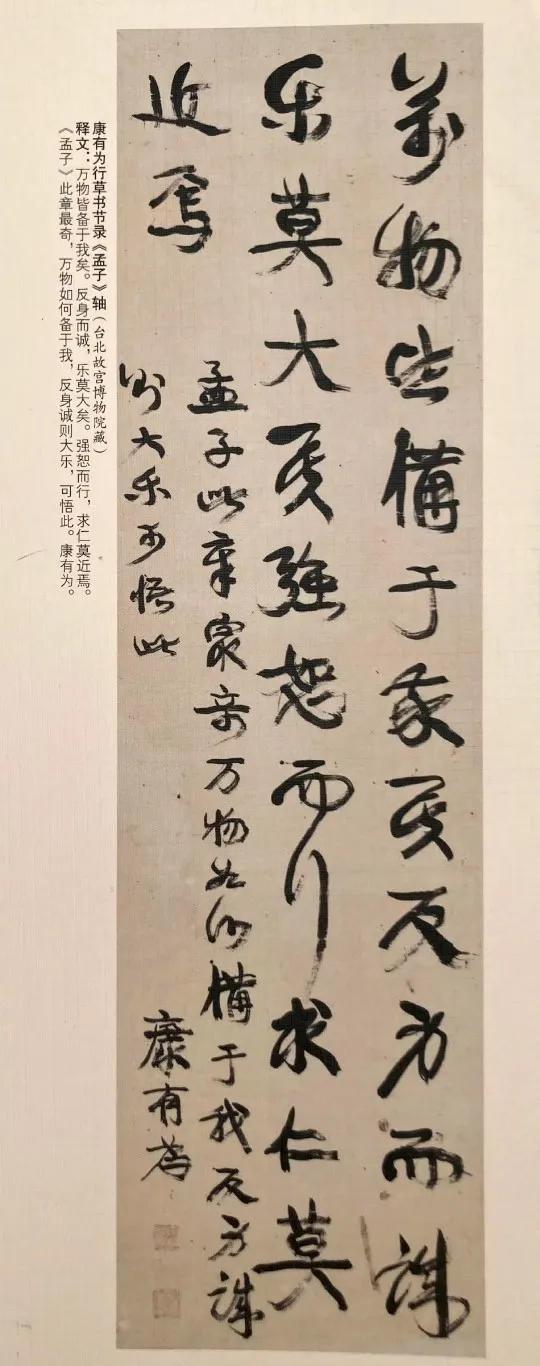 萬物皆備于我矣反身而誠
乐莫大矣强恕而行求仁莫
近焉
孟子此章最奇万物如何備于我反身誠
则大乐可悟此
康有為
康有为行草书节录《孟子》轴(台北故宫博物院藏)
释文:万物皆备于我矣。反身而诚,乐莫大矣。强恕而行,求仁莫近焉。
《孟子》此章最奇,万物如何备于我,反身诚则大乐,可悟此。康有为。